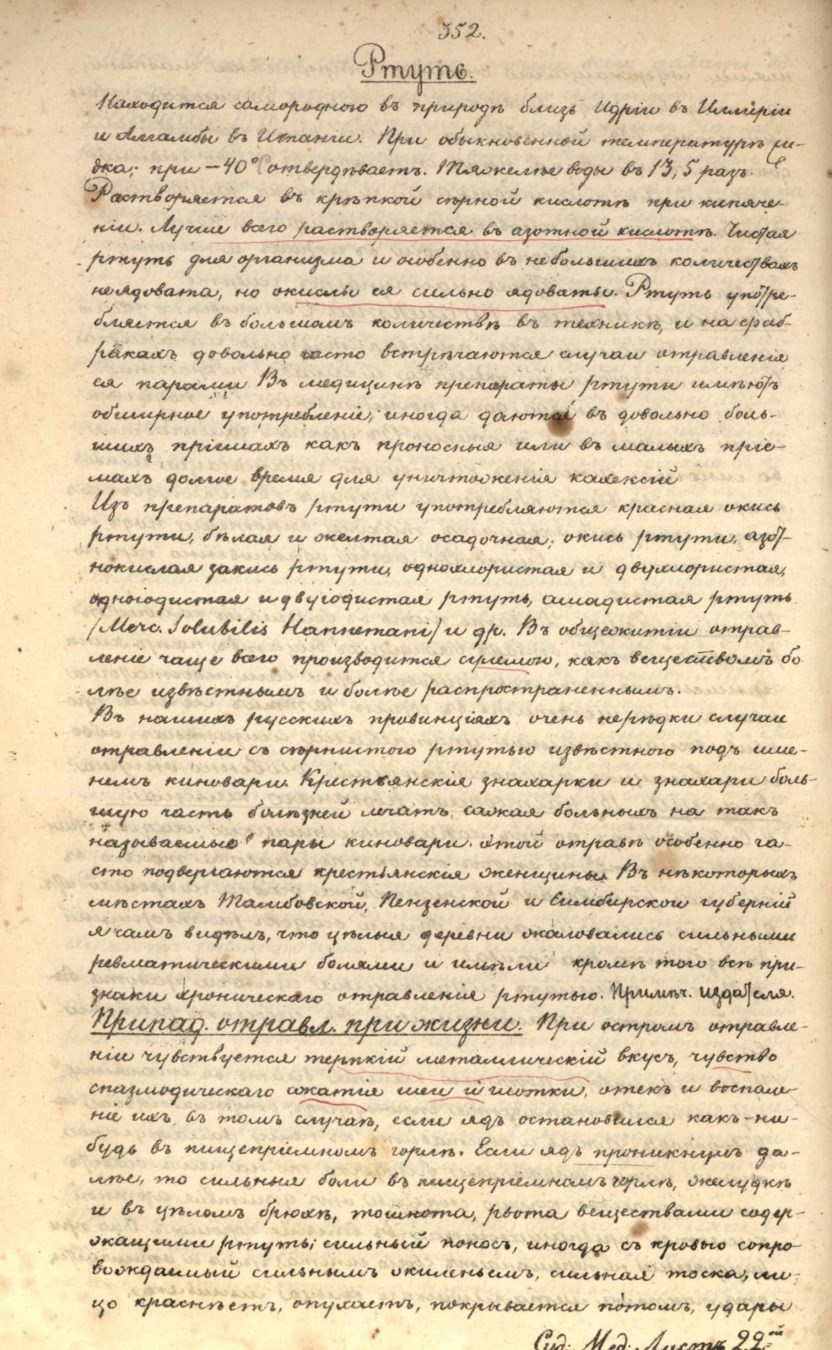 352.
Ртуть.
Находится самороднаго въ природѣ близь Идріи въ Иллиріи
и Алгамбы въ Испаніи. При обыкновенной температурѣ жи-
дка; при -40° отвердѣваетъ. Тяжелѣе воды въ 13,5 разъ.
Растворяется въ крѣпкой сѣрной кислотѣ при кипяче-
ніи. Лучше всего растворяется въ азотной кислотѣ. Чистая
ртуть для организма и особенно въ небольшихъ количествахъ
неядовата, но окислы ея сильно ядовиты. Ртуть употре-
бляется въ большомъ количествѣ въ техникѣ, и на фаб-
рикахъ довольно часто встрѣчаются случаи отравленія
ея парами Въ медицинѣ препораты ртути имѣютъ
обширное употребленіе, иногда даются въ довольно боль-
шихъ пріемахъ какъ проносныя или въ малыхъ прiе-
махъ долгое время для уничтоженія кахексій
Изъ препаратовъ ртути употребляются красная окись
ртути, бѣлая и желтая осадочная; окись ртути, азот-
нокислая закись ртути, однохлористая и двухлористая,
одноіодистая и двуіодистая ртуть, амадистая ртуть
/Merc. Solubilis Hannemani/ и др. Въ общежитіи отрав-
леніе чаще всего производится сулемою, какъ веществомъ бо
лѣе извѣстнымъ и болѣе распространеннымъ.
Въ нашихъ русскихъ провинціяхъ очень нерѣдки случаи
отравленіи съ сѣрнистого ртутью извѣстного подъ име-
немъ киновари. Крестьянскія знахарки и знахари боль-
шую часть болѣзней лечатъ, сажая больныхъ на такъ
называемые пары киновари. Этой отравѣ особенно ча-
сто подвергаются крестьянскія женщины. Въ нѣкоторыхъ
мѣстахъ Тамбовской, Пензенской и Симбирской губерній
я самъ видѣлъ, что цѣлыя деревни жаловались сильными
ревматическими болями и имѣли кромѣ того всѣ при-
знаки хроническаго отравленія ртутью. Примѣч. издателя.
Припад. отравл. при жизни. При остромъ отравле-
ніи чувствуется терпкій металлическій вкусъ, чувство
спазмодическаго сжатія шеи и глотки, отекъ и воспале-
ніе ихъ, въ томъ случаѣ, если ядъ остановился какъ-ни-
будь въ пищепріемномъ горлѣ. Если ядъ проникнулъ да-
лѣе, то сильныя боли въ пищепріемномъ горлѣ, желудкѣ
и въ цѣломъ брюхѣ, тошнота, рвота веществами содер-
жащими ртуть; сильный поносъ, иногда съ кровью сопро-
вождаемый сильнымъ жиленьемъ, сильная тоска, ли-
цо краснѣетъ, опухаетъ, покрывается потомъ, удары
Суд. Мед. Листъ 22ой